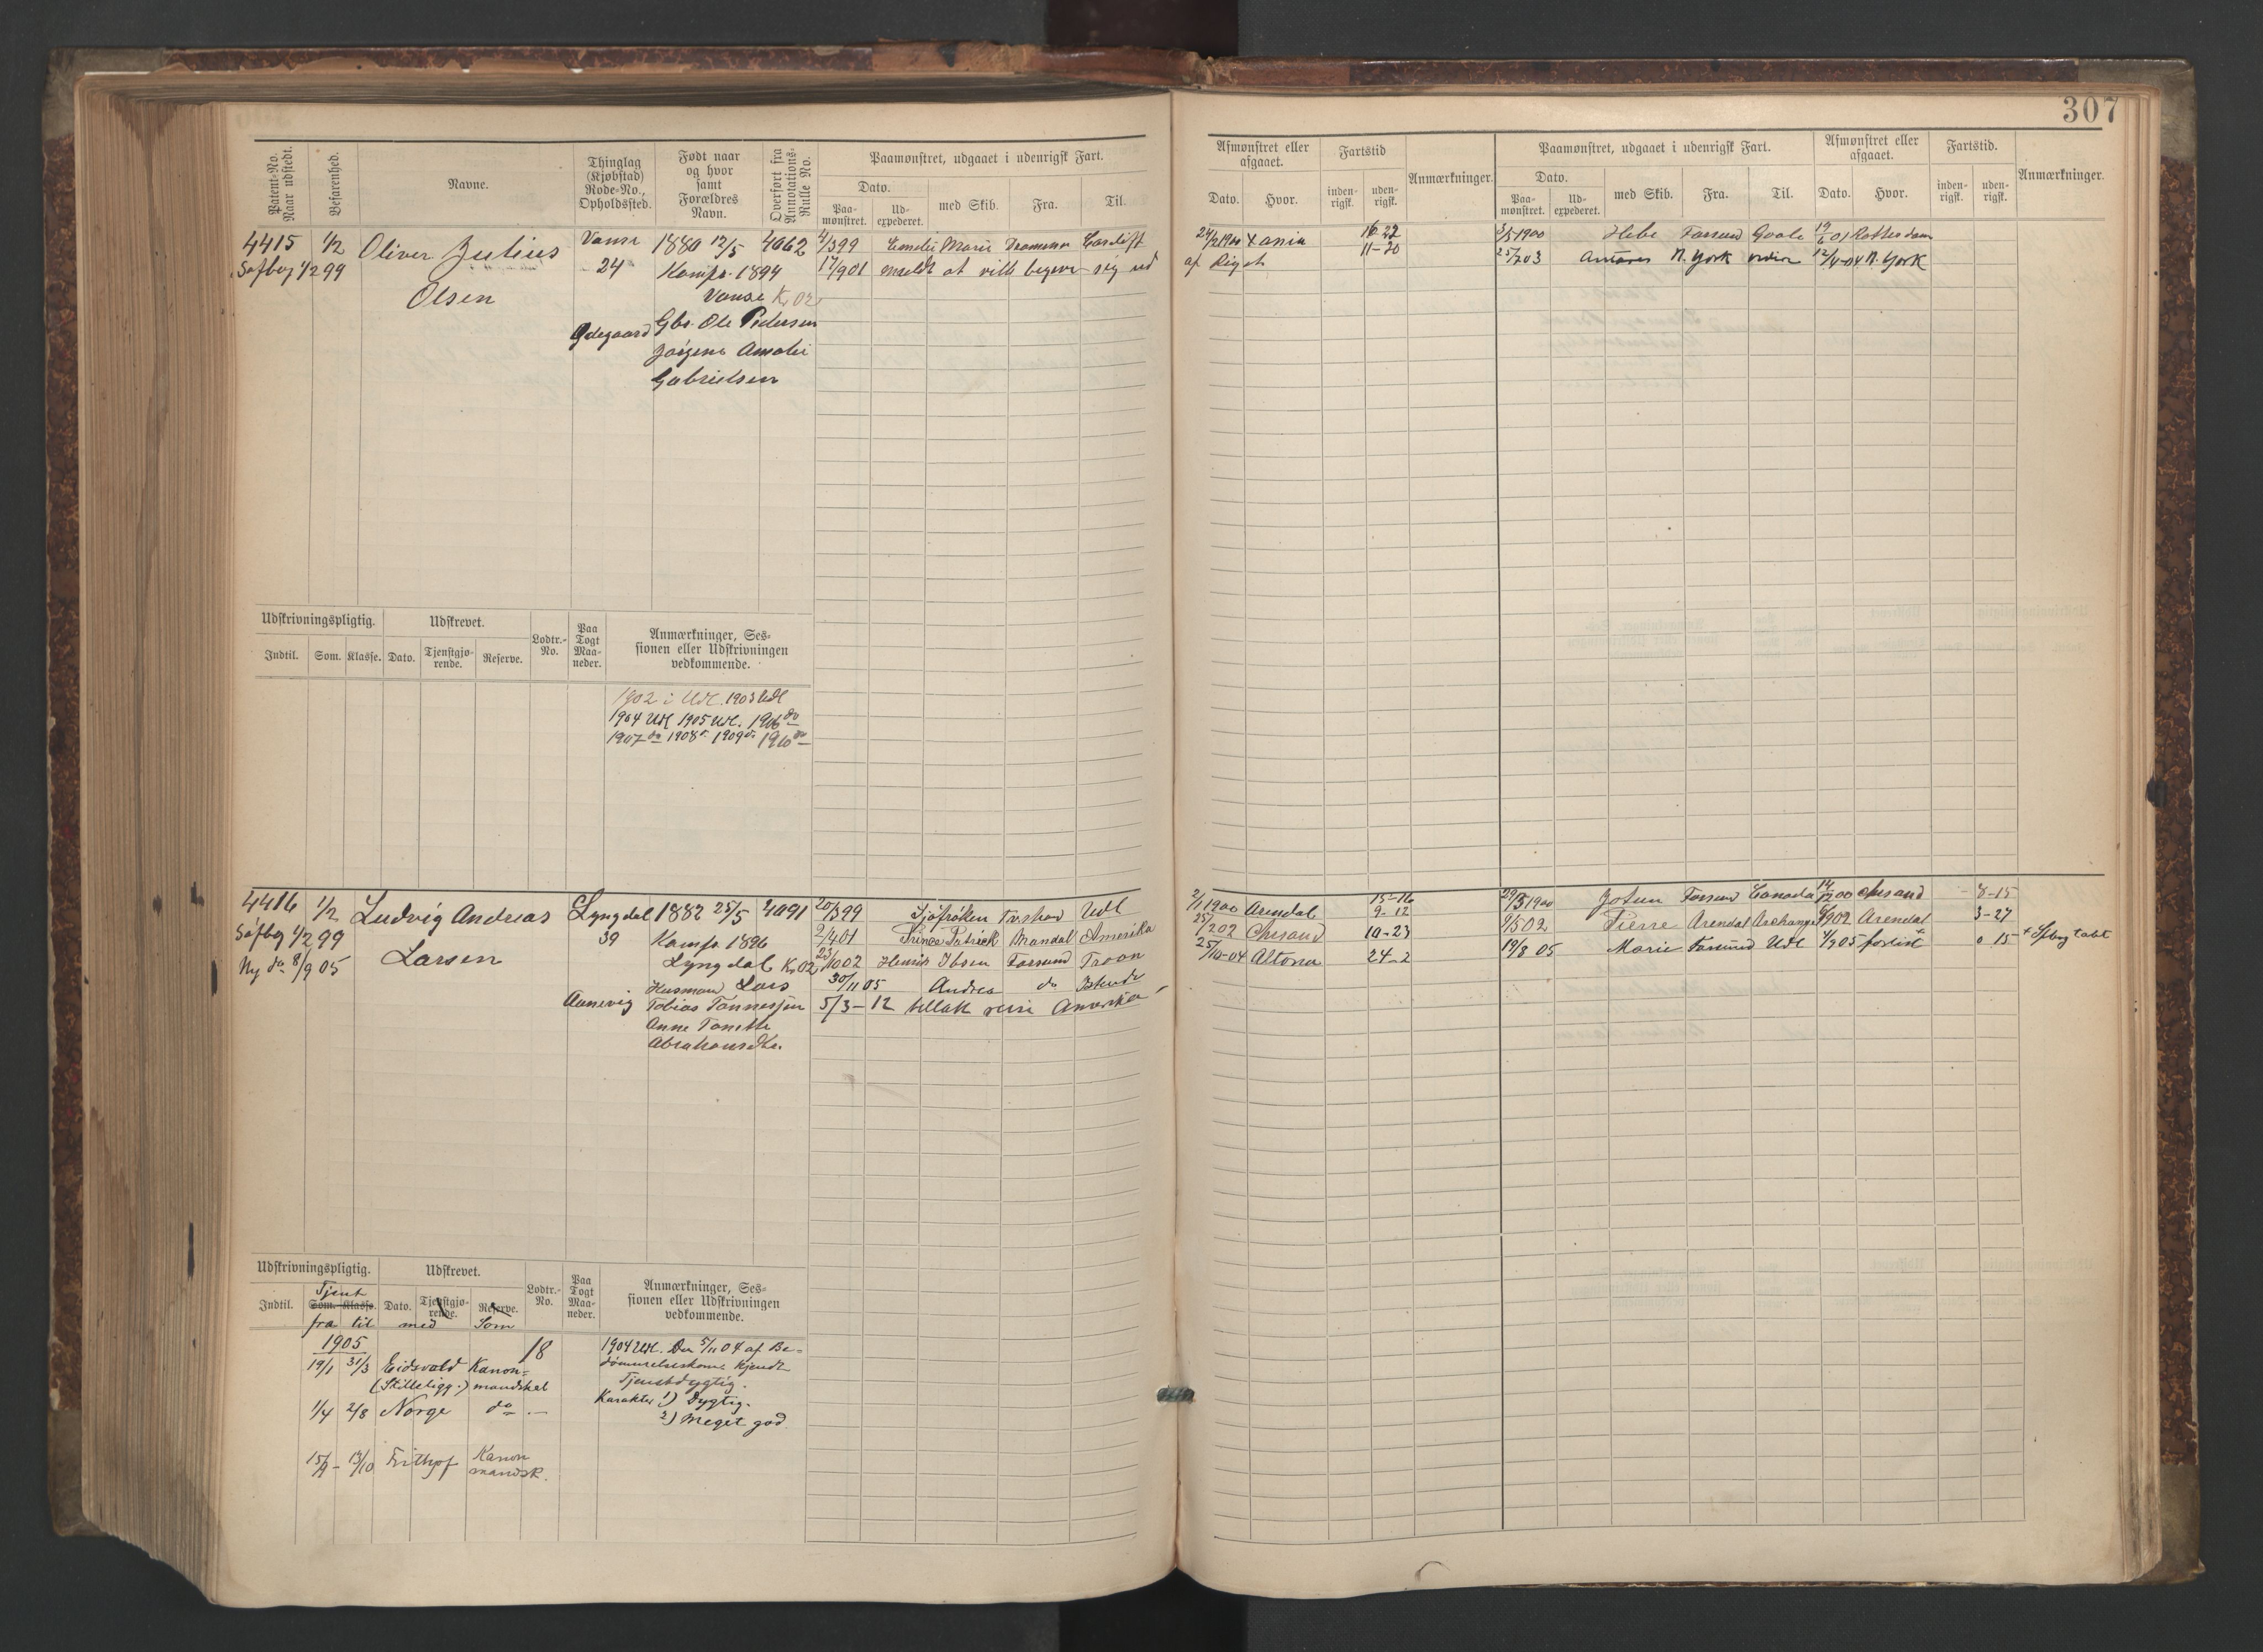 307
Patent-No. Naar udstedt.
Befarenhed.
Navne.
Thinglag (Kjøbstad) Rode-No., Opholdssted.
Født naar og hvor samt Forældres Navn.
Overført fra Annotations-Rulle No.
Paamønstret, udgaaet i udenrigsk Fart.
Dato.
Paa-mønstret.
Ud-expederet.
med Skib.
Fra.
Til.
Afmønstret eller afgaaet.
Dato.
Hvor.
Fartstid
inden-rigsk.
uden-rigsk.
Anmærkninger.
Paamønstret, udgaaet i udenrigsk Fart.
Dato.
Paa-mønstret.
Ud-expederet.
med Skib.
Fra.
Til.
Afmønstret eller afgaaet.
Dato.
Hvor.
Fartstid.
inden-rigsk.
uden-rigsk.
Anmærkninger.
4415 1/2 Oliver Julius Vanse 1880 12/5 4062 4/3 99 Emelie Marie Drammen Cardiff
Søfbog 1/2 99 24 Komfr. 1894 17/9 01 meldt at ville begive sig ud
Olsen Vanse K. 02
Ødegaard Gbr. Ole Pedersen
Jørgine Amalie
Gabrielsen
24/2 1900 Xania 2/5 1900 Hebe Farsund Goole 19/6 01 Rotterdam
af Riget 11-20 25/7 03 Antares N. York ordre 12/4-04 N. York
Udskrivningspligtig.
Udskrevet.
Lodtr.-No.
Paa Togt Maa-neder.
Anmærkninger, Ses-
sionen eller Udskrivningen
vedkommende.
Indtil. Som. Klasse. Dato. Tjenstgjø-rende. Reserve.
1902 i Udl. 1903 Udl
1904 Udl 1905 Udl. 1906 do
1907 do 1908 do 1909 do 1910 do
4416 1/2 Ludvig Andreas Lyngdal 1882 25/5 4091 20/3 99 Sjøfrøken Farsund Udl
Søfbog 1/2 99 39 Komfr 1896 2/4 01 Prince Patrick Mandal Amerika
Ny do 8/9 05 Larsen Lyngdal K. 02 23/10 02 Henrik Ibsen Farsund Troon
Husmand Lars 30/11 05 Andrea do
Aanevig Tobias Tønnessen 5/3-12 tillatt reise Amerika
Anne Tomette
Abrahamsdtr.
2/1 1900 Arendal 15-16 29/3 1900 Jotun Farsund Canada 14/12 00 Chrsand 8-15
25/2 02 Chrsand 9-12 9/5 02 Pierre Arendal Archangel 6/9 02 Arendal 3-27
25/10-04 Altona 10-23 19/8 05 Marie Farsund Udl 4/9 05 forlist + 0 15 + Sfbog tabt
24-2
Udskrivningspligtig.
Udskrevet.
Lodtr.-No.
Paa Togt Maa-neder.
Anmærkninger, Ses-
sionen eller Udskrivningen
vedkommende.
Tjent
Indtil. Som. Klasse. Dato. Tjenstgjø-rende. Reserve.
fra til med Som
1905 18 1904 Udl. Den 5/11 04 af Be-
19/1 31/3 Eidsvold Kanon- dømmelseskom. kjendt
(Stilleligg.) mandskab Tjenstdygtig.
Karakter 1) Dygtig.
1/4 2/8 Norge do
2) Meget god.
15/9 - 13/10 Frithjof Kanon
mandsk.